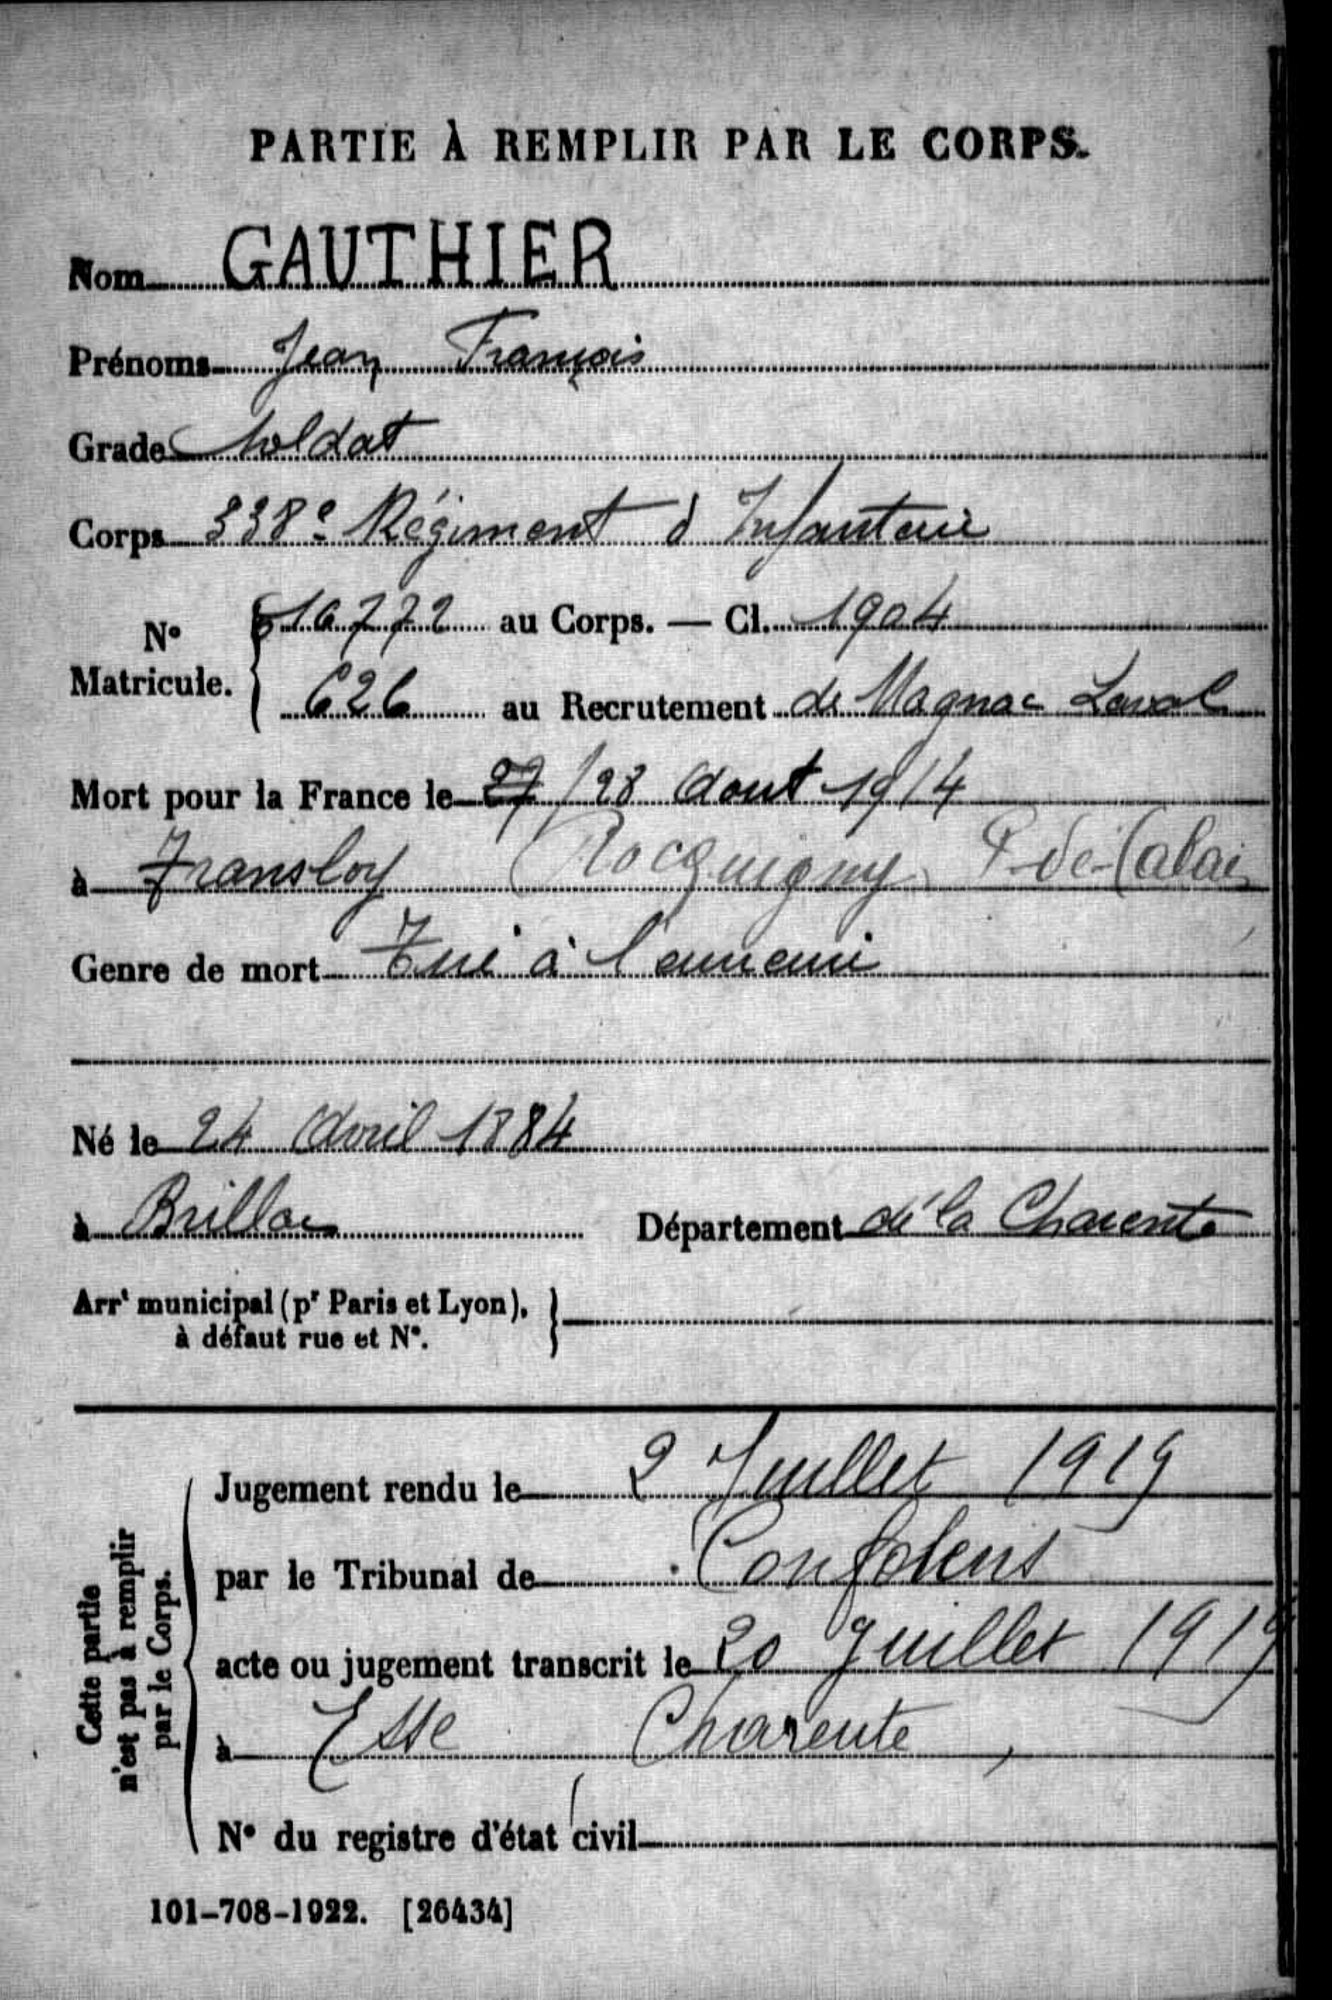 PARTIE À REMPLIR PAR LE CORPS.
Nom GAUTHIER
Prénoms Jean François
Grade Soldat
Corps 338e Régiment d'Infanterie
N° Matricule. { 016772 au Corps. — Cl. 1904
626 au Recrutement de Magnac Laval
Mort pour la France le 27/28 Aout 1914
à Transloy Rocquigny P-de-Calais
Genre de mort Tué à l'ennemi
Né le 24 Avril 1884
à Brillac Département de la Charente
Arrt municipal (pr Paris et Lyon), }
à défaut rue et N°.
Cette partie n'est pas à remplir par le Corps.
Jugement rendu le 2 Juillet 1919
par le Tribunal de Confolens
acte ou jugement transcrit le 20 Juillet 1919
à Esse Charente
N° du registre d'état civil
101-708-1922. [26434]